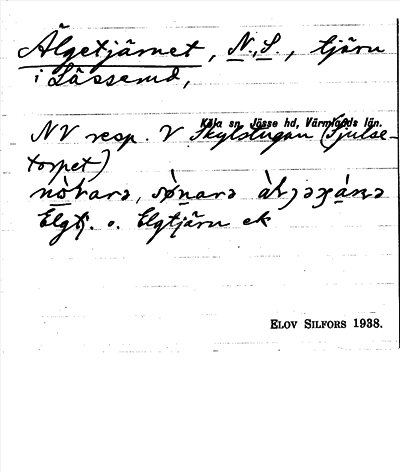 Älgetjärnet, N., S., tjärn
i Lässerud,
Köla sn, Jösse hd, Värmlands län.
NV resp. V Skylstugan (Fjulse-
torpet)
Elgtj. o. Elgtjärn ek
ELOV SILFORS 1938.